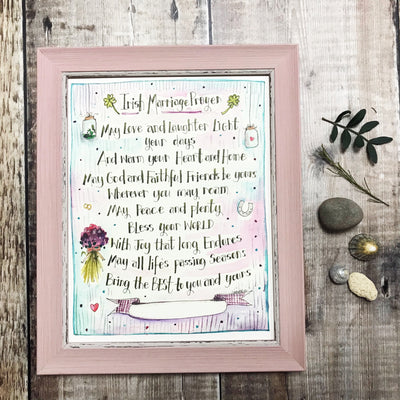 Irish Marriage Prayer
May Love and Laughter Light
your days,
And warm your Heart and Home
May God and Faithful Friends be yours
Wherever you may roam
May Peace and plenty
Bless your WORLD
With Joy that long Endures
May all life's passing Seasons
Bring the BEST to you and yours